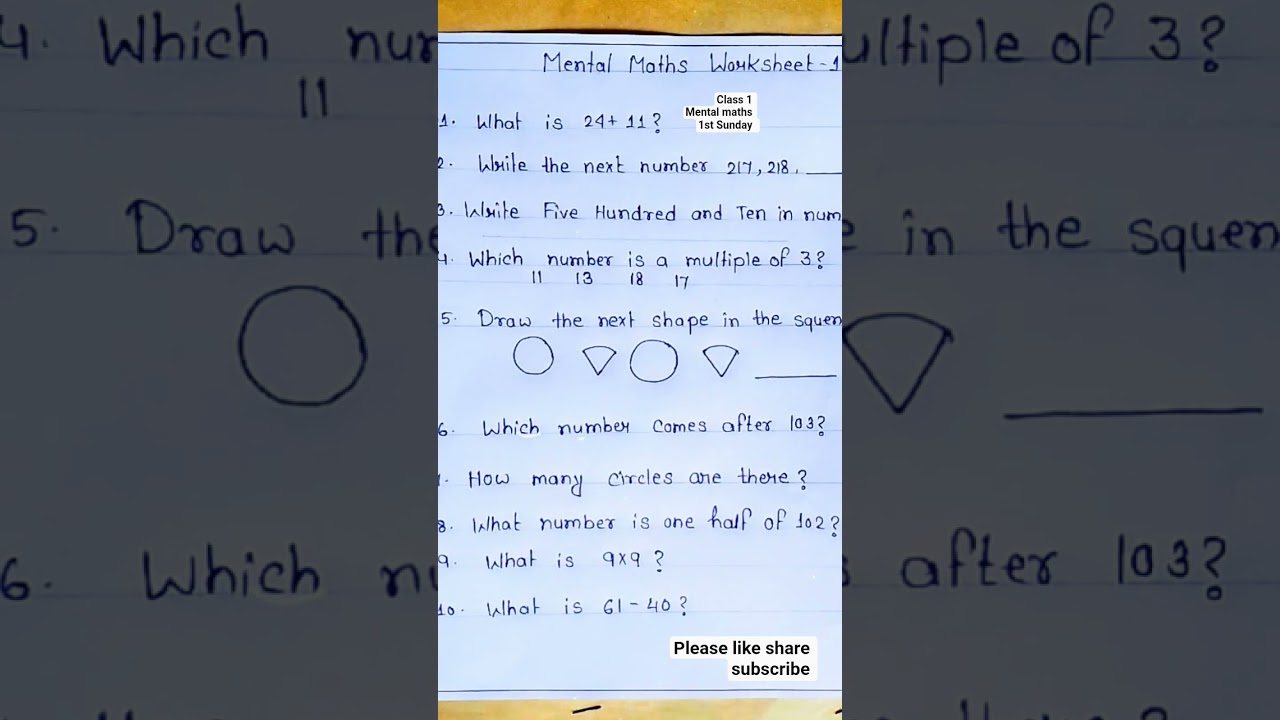 Mental Maths Worksheet-1
Class 1
Mental maths
1st Sunday
1. What is 24+ 11?
2. Write the next number 217, 218, ____
3. Write Five Hundred and Ten in num
4. Which number is a multiple of 3?
11 13 18 17
5. Draw the next shape in the squen
____
6. Which number comes after 103?
How many circles are there?
8. What number is one half of 102?
9. What is 9x9?
10. What is 61-40?
Please like share
subscribe
4. Which num
ultiple of 3?
11
5. Draw the
in the squen
6. Which nu
after 103?